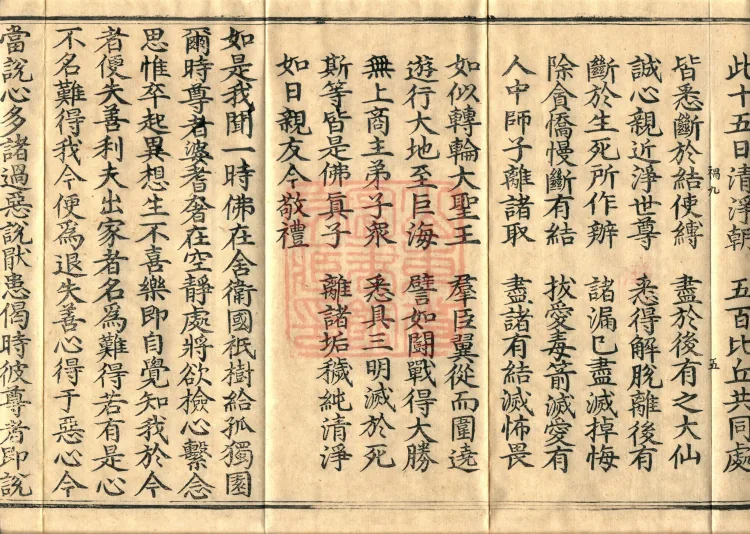 此十五日清淨朝　五百比丘共同處
禍九　五
皆悉斷於結使縛　盡於後有之大仙
誠心親近淨世尊　悉得解脫離後有
斷於生死所作辦　諸漏已盡滅掉悔
除貪憍慢斷有結　拔愛毒箭滅愛有
人中師子離諸取　盡諸有結滅怖畏
如似轉輪大聖王　羣臣翼從而圍遶
遊行大地至巨海　譬如鬪戰得大勝
無上商主弟子衆　悉具三明滅於死
斯等皆是佛真子　離諸垢穢純清淨
如日親友今敬禮
如是我聞一時佛在舍衛國祇樹給孤獨園
爾時尊者婆耆奢在空靜處將欲檢心繫念
思惟卒起異想生不喜樂即自覺知我於今
者便失善利夫出家者名為難得若有是心
不名難得我今便爲退失善心得于惡心今
當說心多諸過惡說猒患偈時彼尊者即說